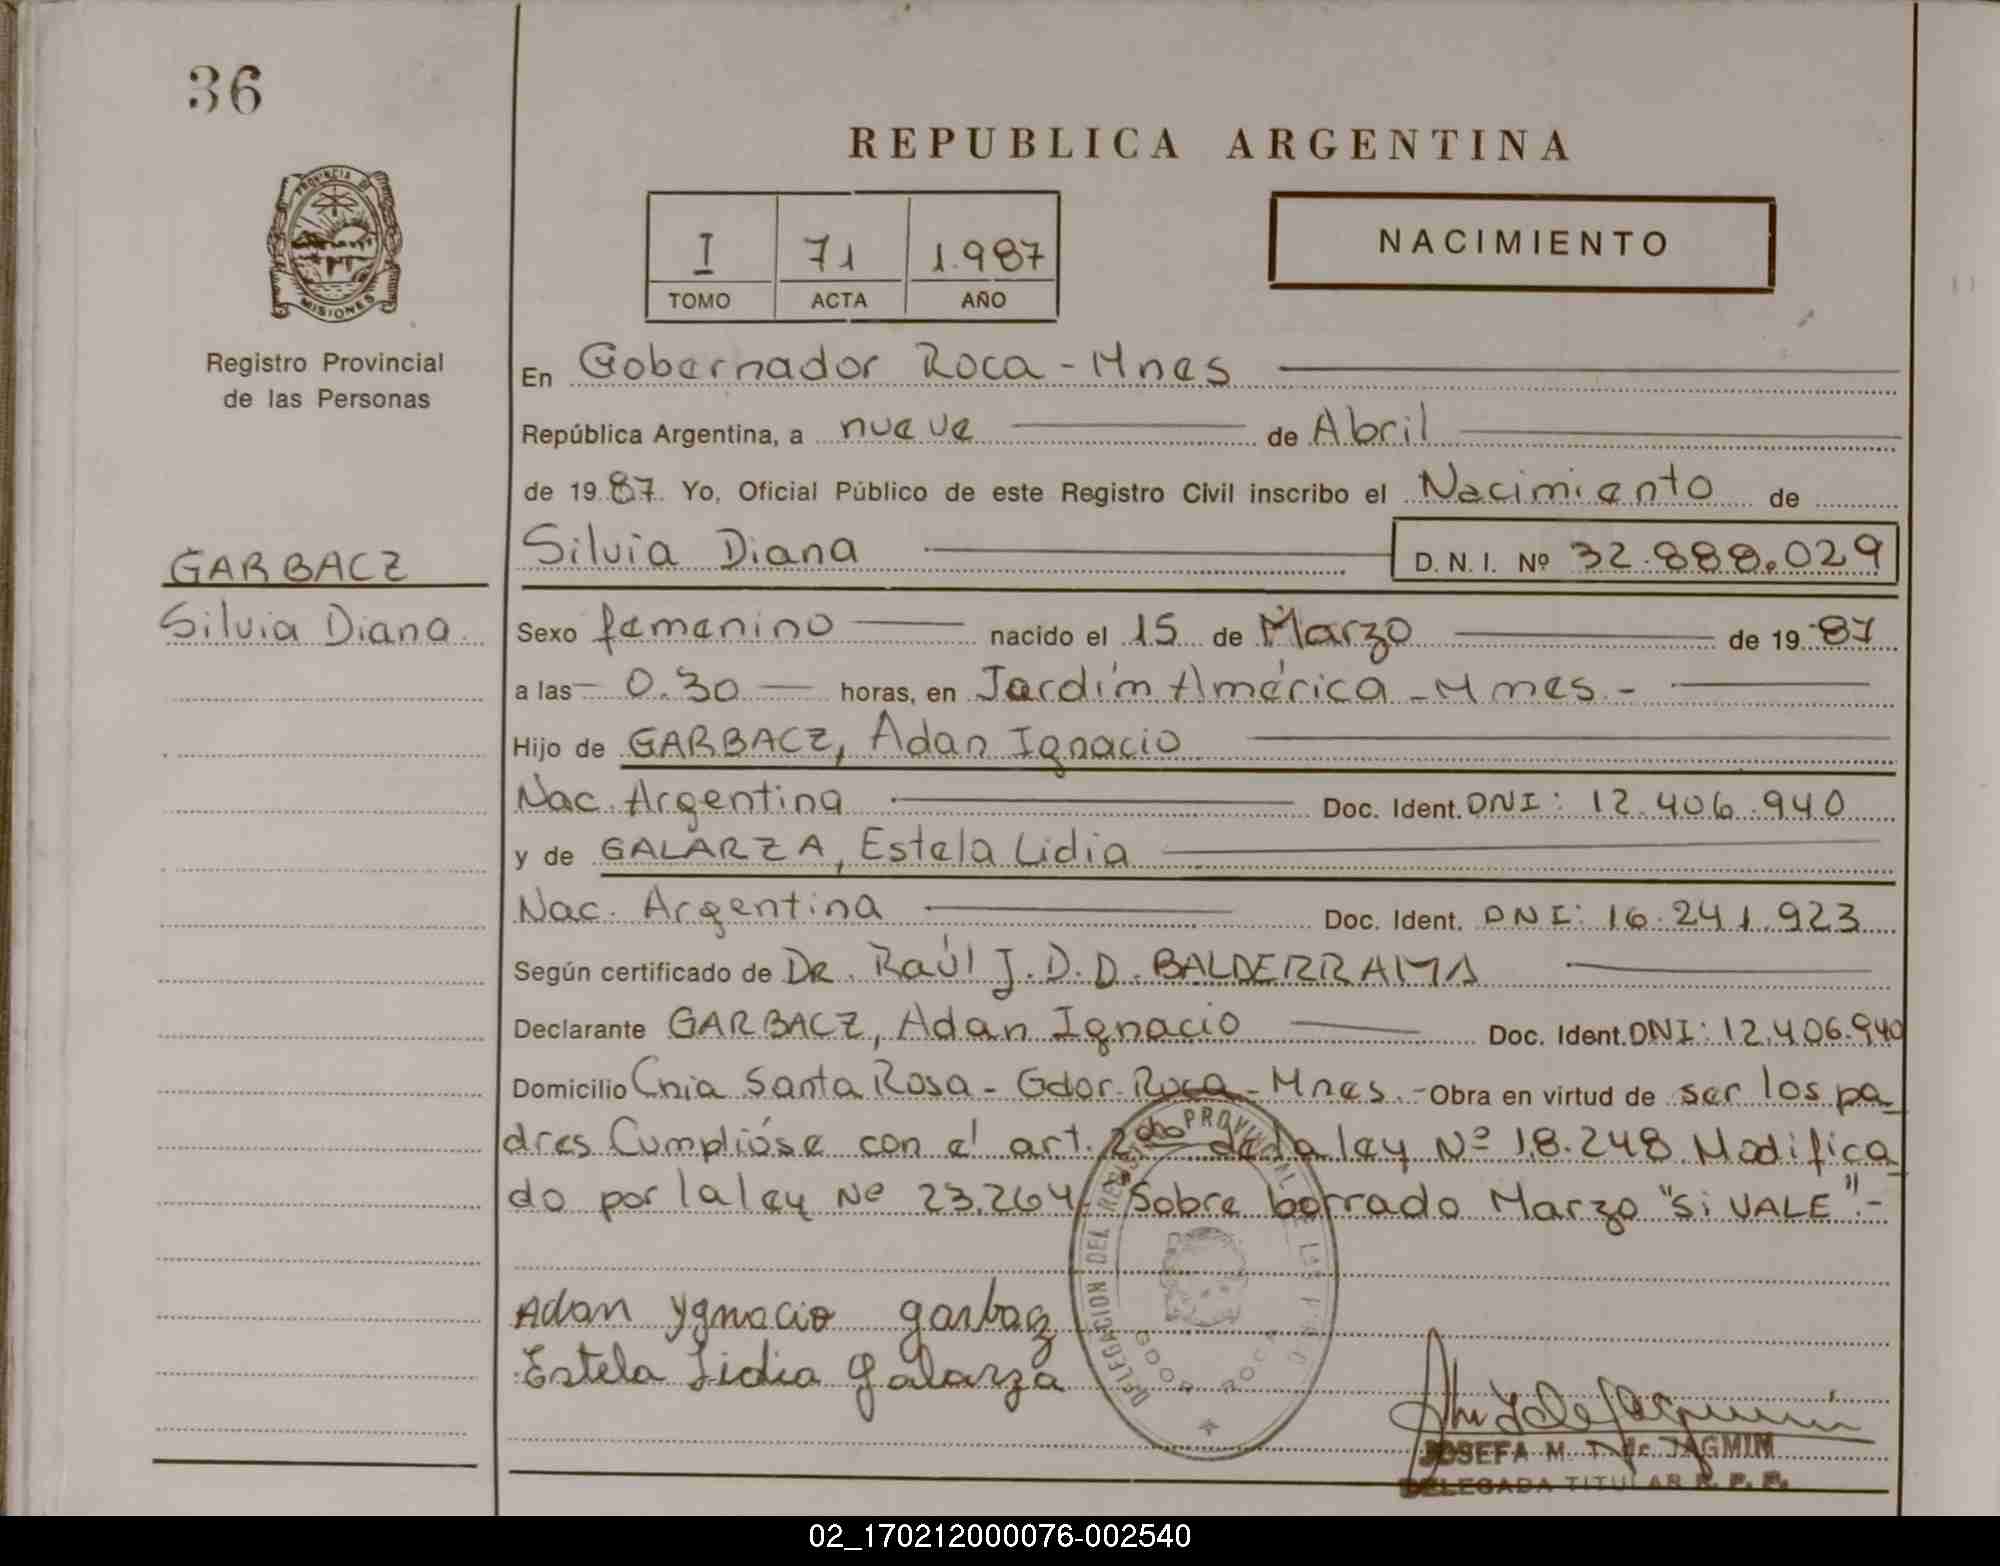 36
REPUBLICA ARGENTINA
PROVINCIA DE
MISIONES
I 71 1.987
TOMO ACTA AÑO
NACIMIENTO
Registro Provincial
de las Personas
En Gobernador Roca - Mnes
República Argentina, a nueve de Abril
de 1987. Yo, Oficial Público de este Registro Civil inscribo el Nacimiento de
GARBACZ
Silvia Diana D. N. I. Nº 32.888.029
Silvia Diana
Sexo femenino nacido el 15 de Marzo de 1987
a las 0.30 horas, en Jardín América - Mnes.-
Hijo de GARBACZ, Adan Ignacio
Nac. Argentina Doc. Ident. DNI: 12.406.940
y de GALARZA, Estela Lidia
Nac. Argentina Doc. Ident. DNI: 16.241.923
Según certificado de DR. Raúl J. D. D. BALDERRAMA
Declarante GARBACZ, Adan Ignacio Doc. Ident. DNI: 12.406.940
Domicilio Cnia Santa Rosa - Gdor. Roca - Mnes.- Obra en virtud de ser los pa-
dres Cumplióse con el art. 2do de la ley Nº 18.248 Modifica-
do por la ley Nº 23.264. Sobre borrado Marzo "Si VALE".-
Adan Ygnacio garbacz
Estela Lidia galarza
DELEGACION DEL REGISTRO PROVINCIAL DE LAS
GDOR ROCA
JOSEFA M. T. de JAGMIN
DELEGADA TITULAR R. P. P.
02_170212000076-002540